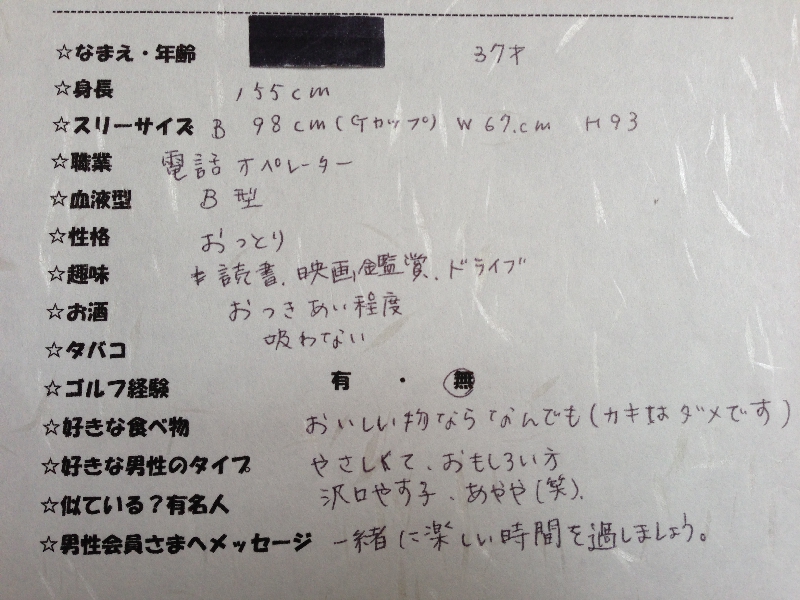 ☆なまえ・年齢 37才
☆身長 155cm
☆スリーサイズ B 98cm(Gカップ) W 67.cm H 93
☆職業 電話オペレーター
☆血液型 B型
☆性格 おっとり
☆趣味 読書、映画鑑賞、ドライブ
☆お酒 おつきあい程度
☆タバコ 吸わない
☆ゴルフ経験 有 ・ 無
☆好きな食べ物 おいしい物ならなんでも(カキはダメです)
☆好きな男性のタイプ やさしくて、おもしろい方
☆似ている?有名人 沢口やす子、あやや(笑).
☆男性会員さまへメッセージ 一緒に楽しい時間を過しましょう。